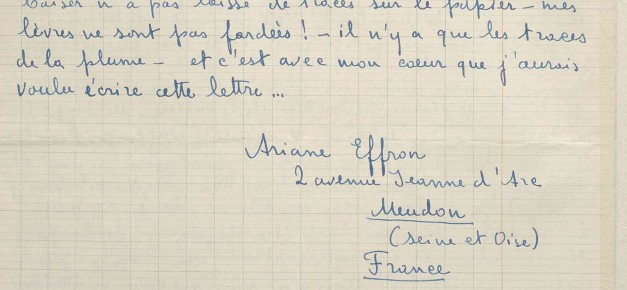 baiser n'a pas laissé de traces sur le papier — mes
lèvres ne sont pas fardées ! — il n'y a que les traces
de la plume — et c'est avec mon coeur que j'aurais
voulu écrire cette lettre ...
Ariane Effron
2 avenue Jeanne d'Arc
Meudon
(Seine et Oise)
France